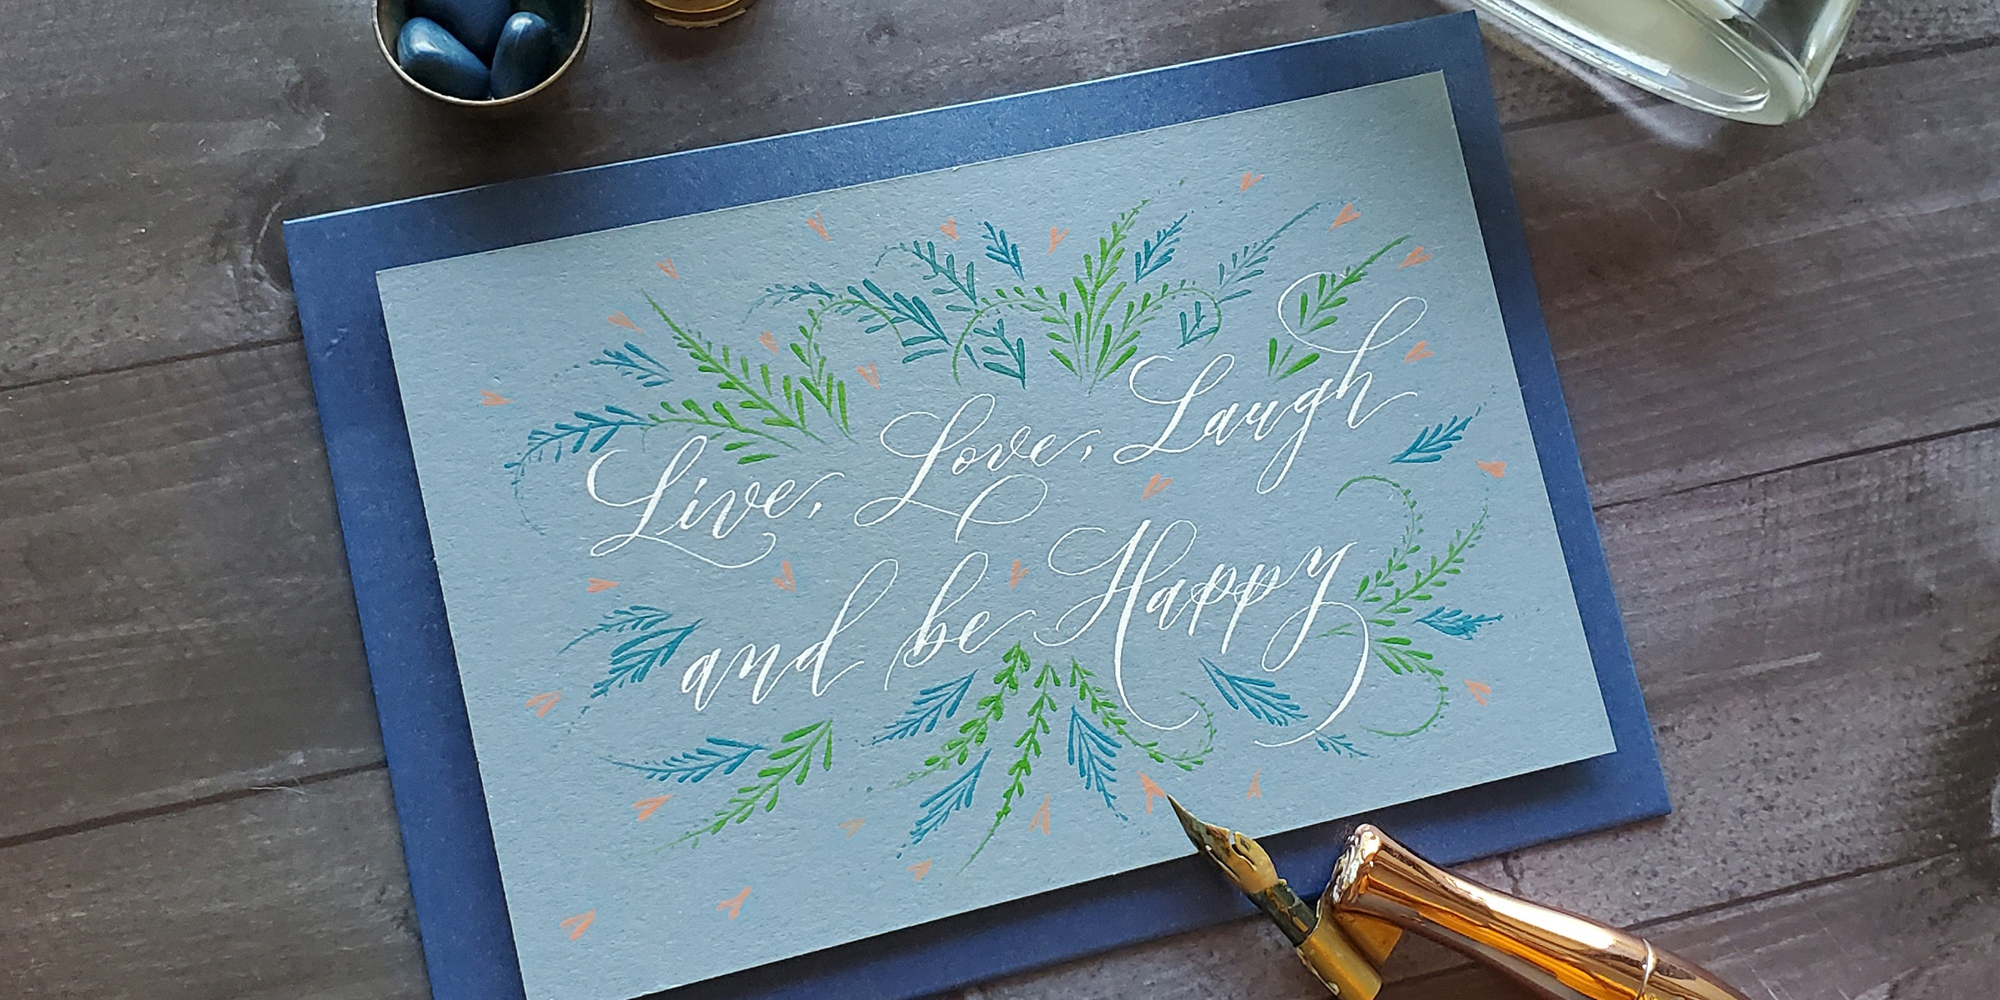 Live, Love, Laugh
and be Happy